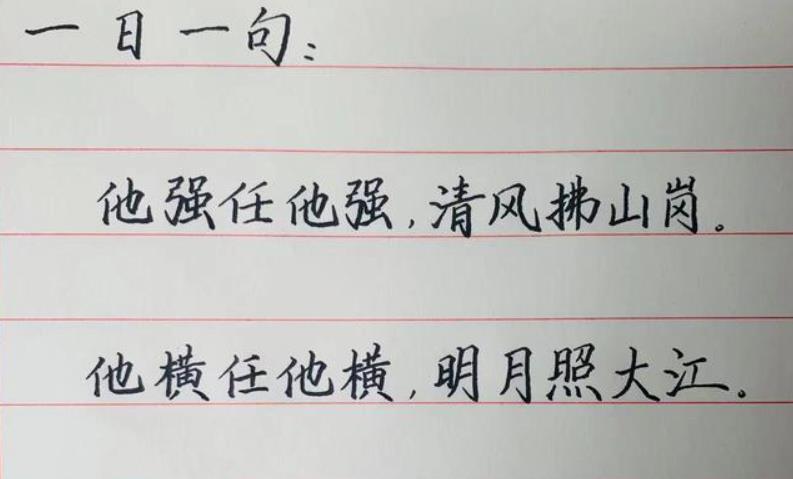 一日一句：
他强任他强,清风拂山岗。
他横任他横,明月照大江。